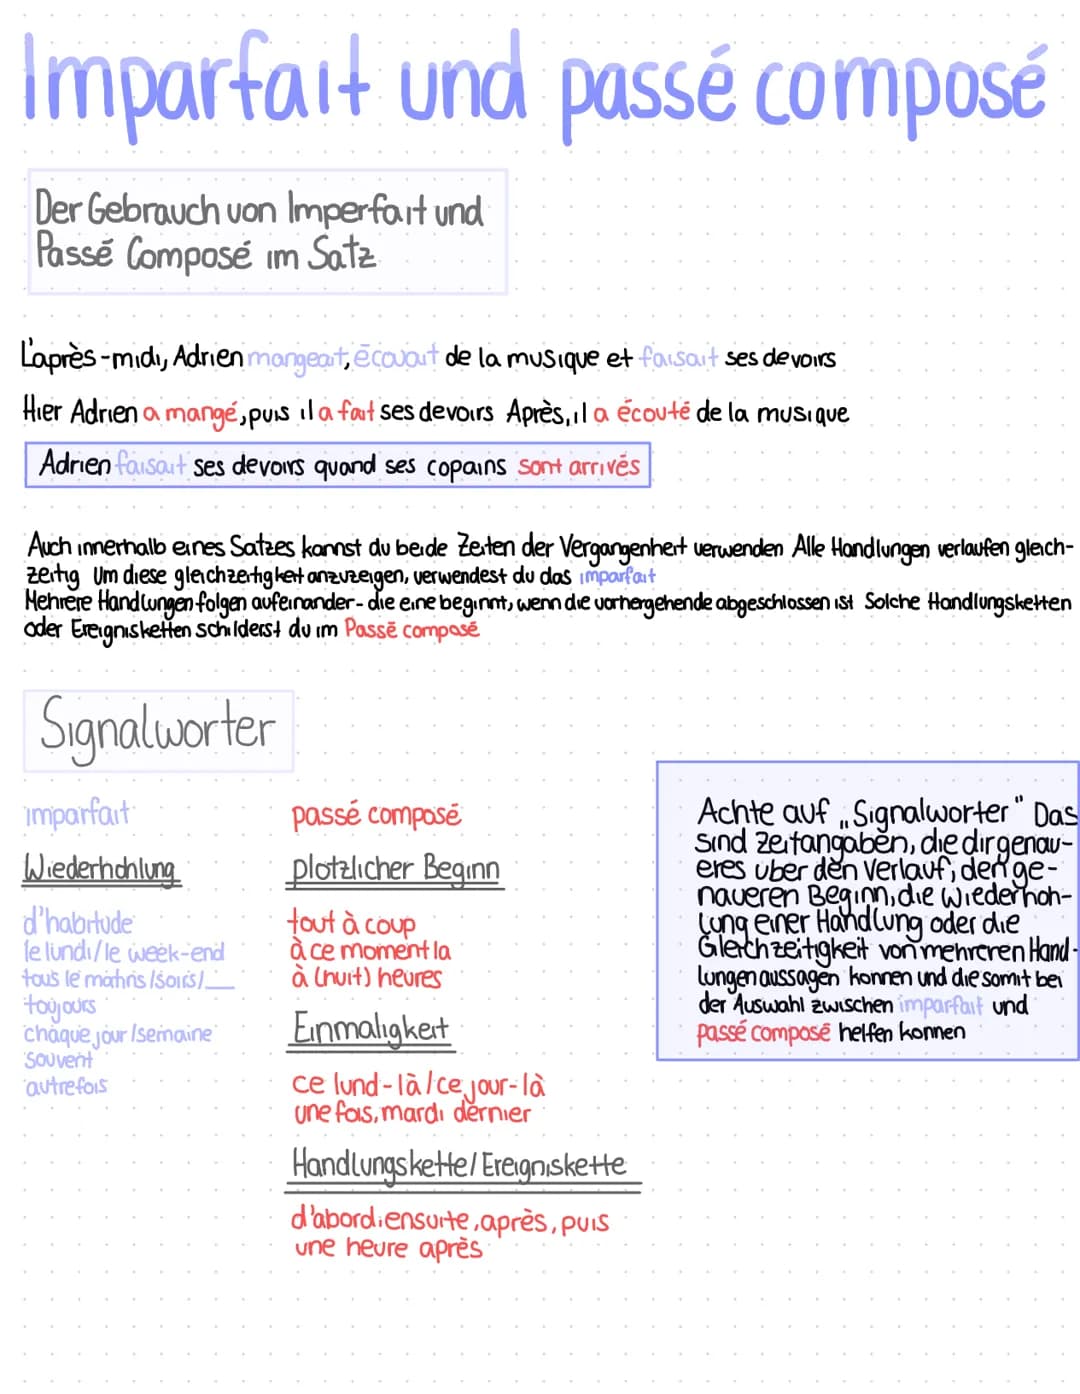 Imparfait und passé composé
Der Gebrauch von Imperfait und
Passé Composé im Satz
L'après-midi, Adrien mangeait, écouait de la musique et faisait ses devoirs
Hier Adrien a mangé, puis il a fait ses devoirs Après, il a écouté de la musique
Adrien faisait ses devoirs quand ses copains sont arrivés
Auch innerhalb eines Satzes kannst du beide Zeiten der Vergangenheit verwenden Alle Handlungen verlaufen gleich-
zeitig Um diese gleichzeitigkeit anzuzeigen, verwendest du das imparfait
Mehrere Handlungen folgen aufeinander - die eine beginnt, wenn die vorhergehende abgeschlossen ist Solche Handlungsketten
oder Ereignisketten schilderst du im Passé composé
Signalworter
imparfait
Wiederhohlung
d'habitude
le lundi/le week-end
tous le matins/soirs/__
toujours
chaque jour/semaine
souvent
autrefois
passé composé
plotzlicher Beginn
tout à coup
à ce moment la
à (huit) heures
Einmaligkeit
ce lund-là/ce jour-là
une fois, mardi dernier
Handlungskette/Ereigniskette
d'abord, ensuite, après, puis
une heure après
Achte auf „Signalworter" Das
sind zeitangaben, die dir genau-
eres über den Verlauf, den ge-
naueren Beginn, die Wiederhoh-
lung einer Handlung oder die
Gleichzeitigkeit von mehreren Hand-
lungen aussagen konnen und die somit bei
der Auswahl zwischen imparfait und
passé composé helfen konnen